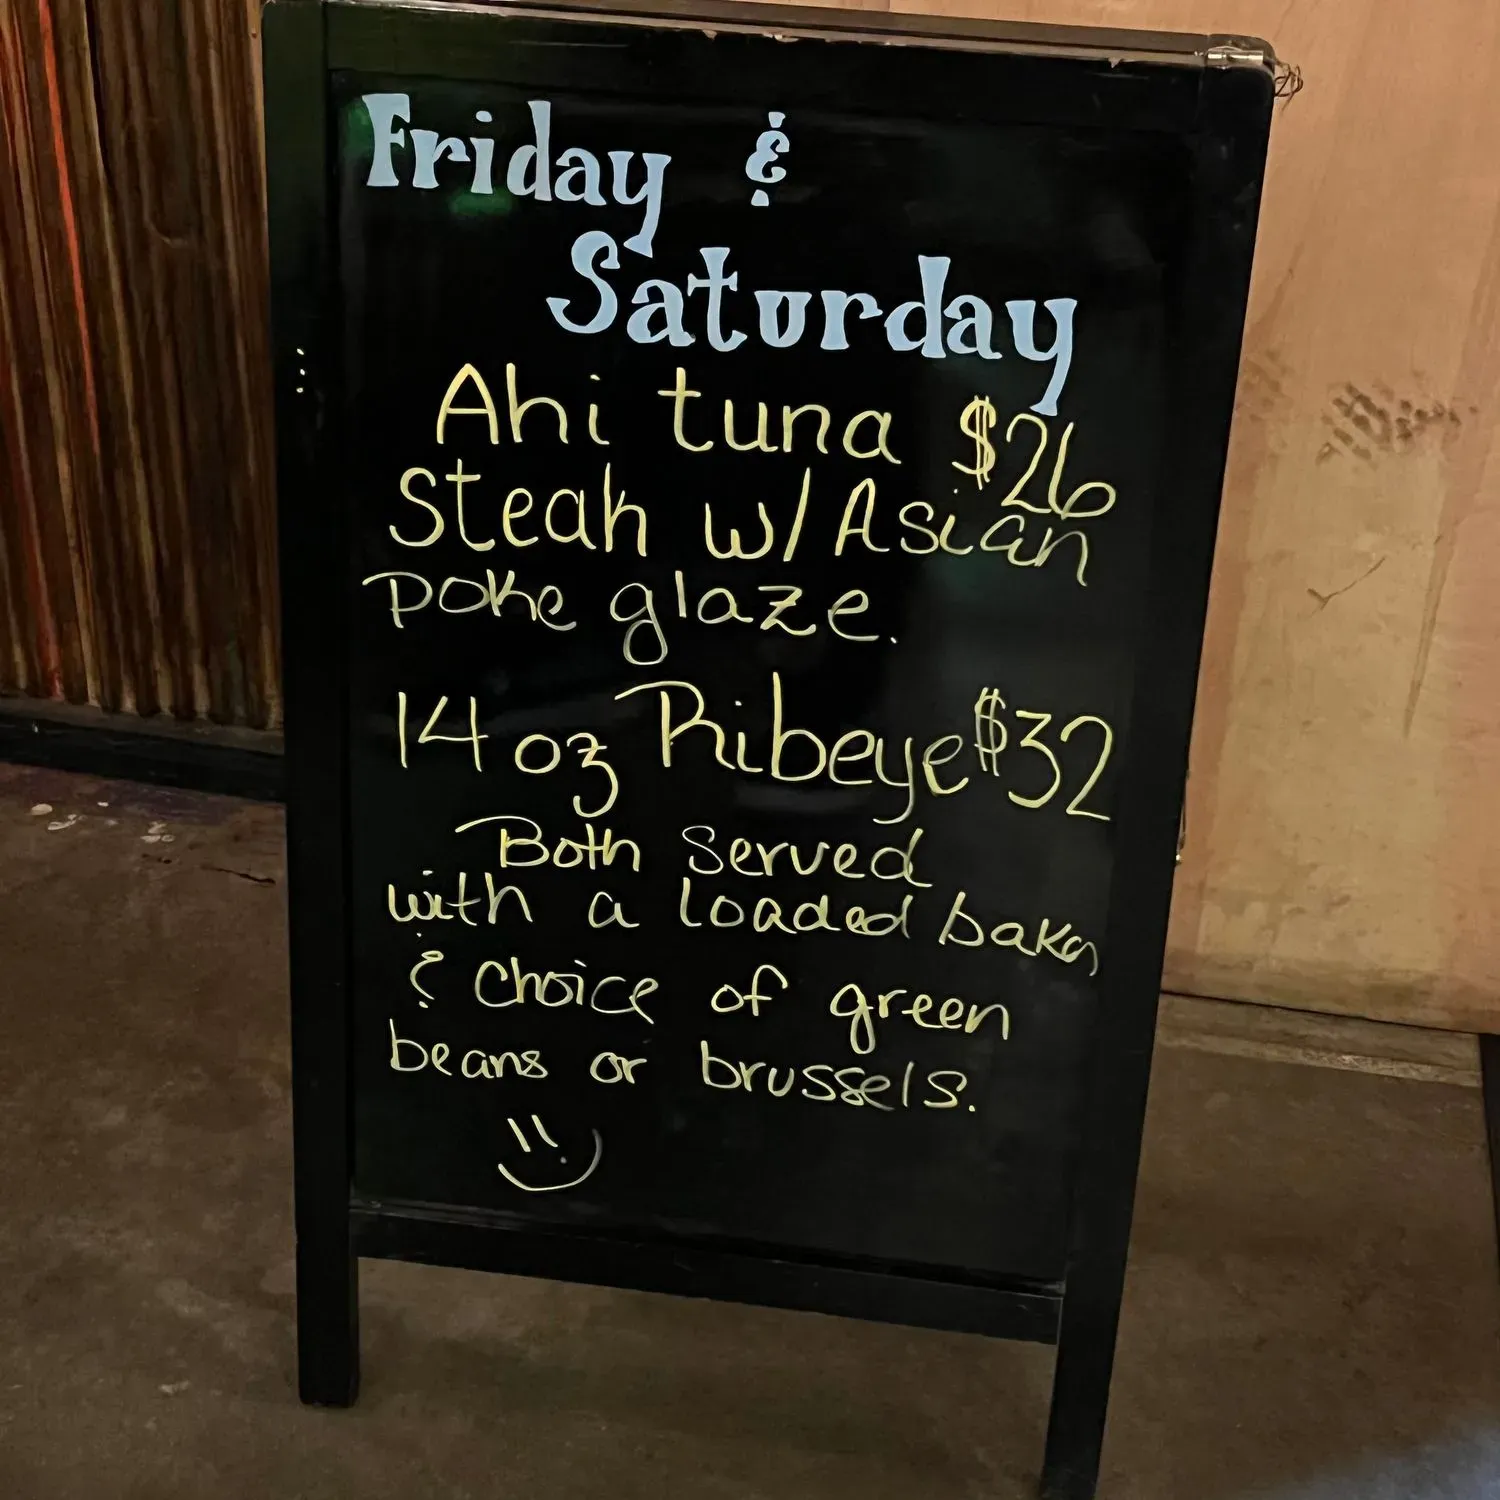 Friday &
Saturday
Ahi tuna $26
Steak w/ Asian
poke glaze.
14 oz Ribeye $32
Both served
with a loaded baka
& choice of green
beans or brussels.